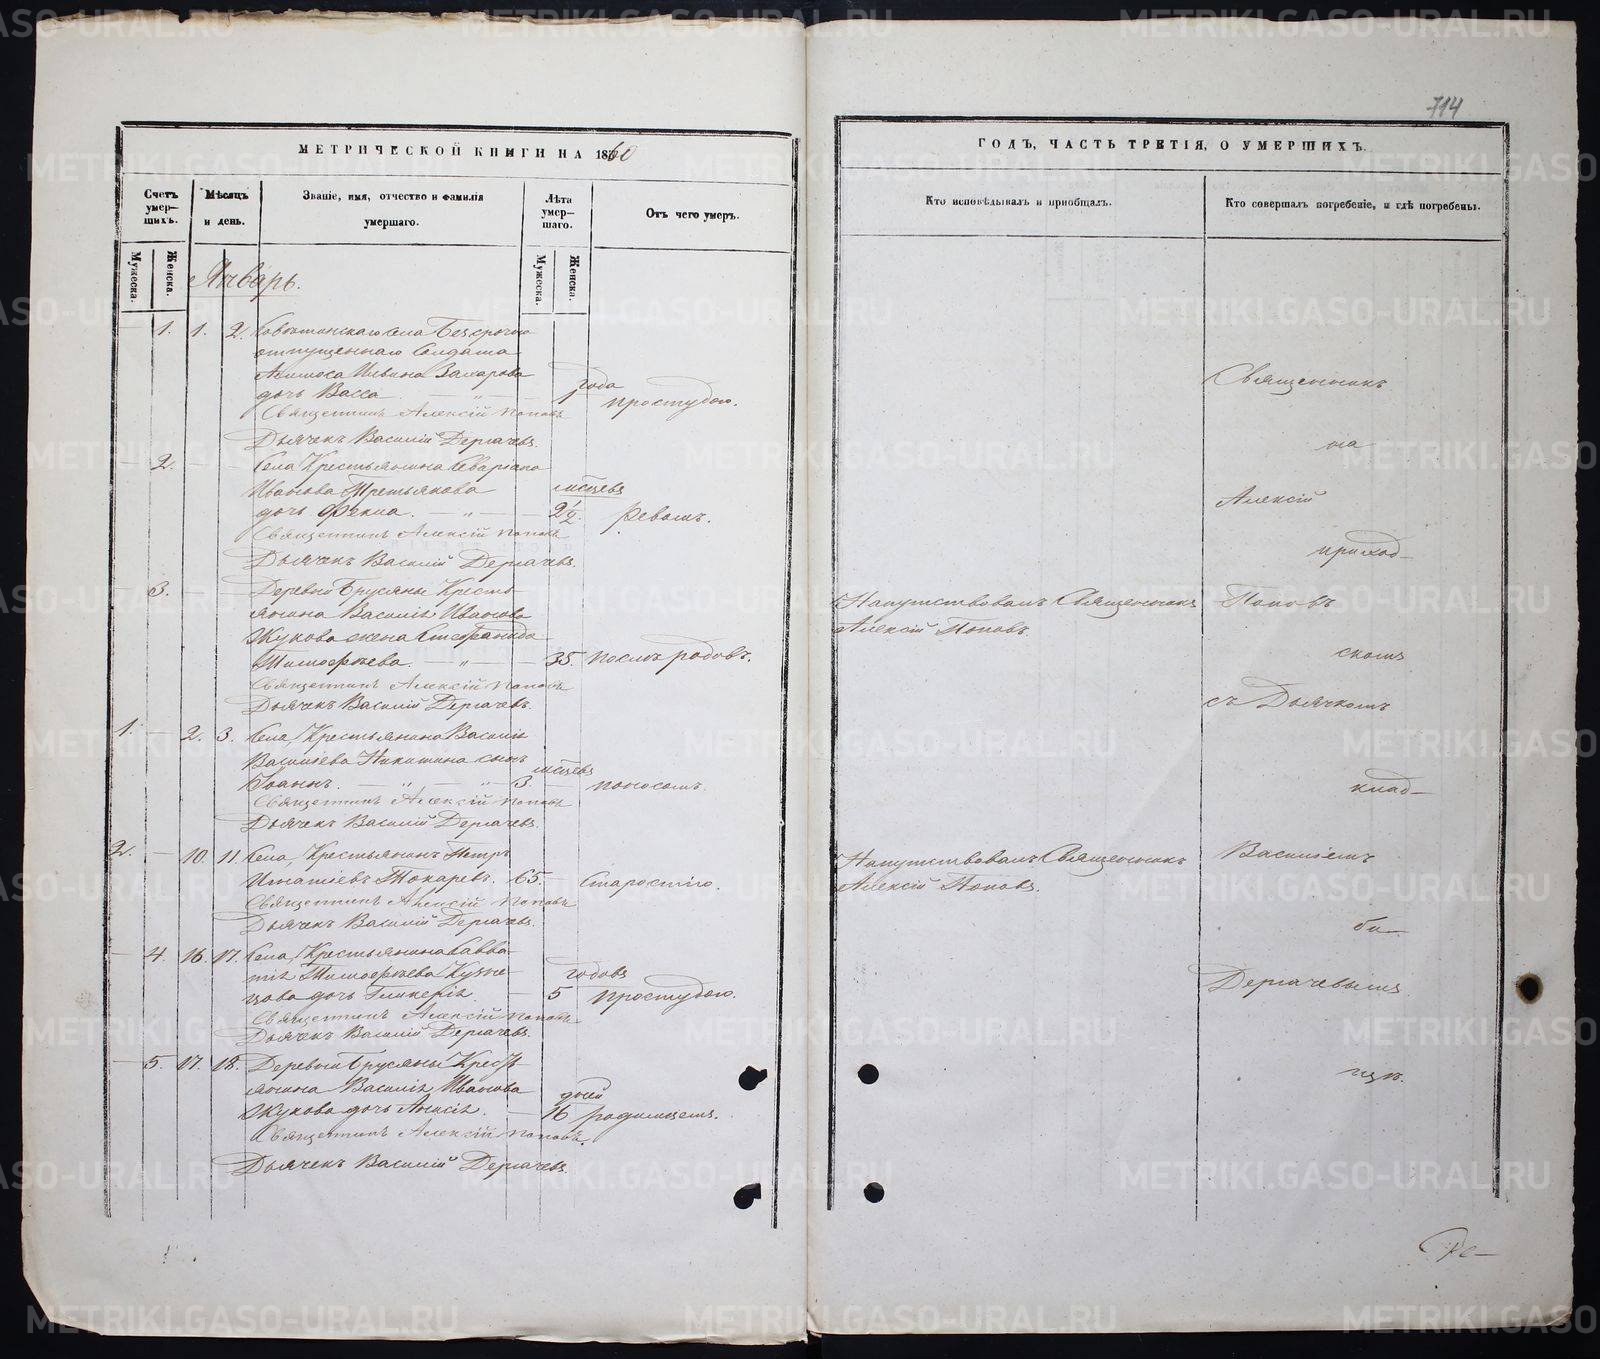 714
МЕТРИЧЕСКОЙ КНИГИ НА 1860
ГОДЪ, ЧАСТЬ ТРЕТІЯ, О УМЕРШИХЪ.
Счетъ умер-шихъ.
Мужеска.
Женска.
Мѣсяцъ и день.
Званіе, имя, отчество и фамилія умершаго.
Лѣта умер-шаго.
Мужеска.
Женска.
Отъ чего умеръ.
Кто исповѣдывалъ и пріобщалъ.
Кто совершалъ погребеніе, и гдѣ погребены.
Январь.
— 1. 1. 2. села Безсрочно
отпущеннаго Солдата
Ильина Захарова года
дочь Васса. — „ — 1 простудою.
Священникъ Алексій Поповъ
Дьячекъ Василій Дергачевъ.
— 2. — — Села, Крестьянина
Иванова Третьякова мѣсяцевъ
дочь Фекла. — „ — 2 1/2. ревомъ.
Священникъ Алексій Поповъ
Дьячекъ Василій Дергачевъ.
— 3. — — Деревни Брусяны Кресть-
янина Василія Иванова
Жукова жена Стефанида
Тимофѣева. — „ — 35. послѣ родовъ.
Священникъ Алексій Поповъ
Дьячекъ Василій Дергачевъ.
1. — 2. 3. Села, Крестьянина Василія
Васильева Никитина сынъ мѣсяцевъ
Іоаннъ. — „ — „ — 3. — поносомъ.
Священникъ Алексій Поповъ
Дьячекъ Василій Дергачевъ.
2. — 10. 11. Села, Крестьянинъ Петръ
Игнатіевъ Токаревъ. 65. — Старостію.
Священникъ Алексій Поповъ
Дьячекъ Василій Дергачевъ.
— 4. 16. 17. Села, Крестьянина Савва-
тія Тимофѣева Кузне- годовъ
цова дочь Гликерія. — 5 простудою.
Священникъ Алексій Поповъ
Дьячекъ Василій Дергачевъ.
— 5. 17. 18. Деревни Брусяны Крест-
янина Василія Иванова дней
Жукова дочь Анисія. — 16 родимцемъ.
Священникъ Алексій Поповъ.
Дьячекъ Василій Дергачевъ.
Напутствовалъ Священникъ
Алексій Поповъ.
Напутствовалъ Священникъ
Алексій Поповъ.
Священникъ
на
Алексій
приход-
Поповъ
скомъ
съ Дьячкомъ
клад-
Василіемъ
би-
Дергачевымъ
щѣ.
METRIKI.GASO-URAL.RU